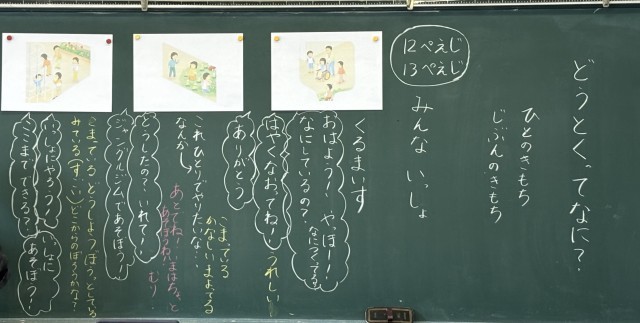 どうとくってなに？
ひとのきもち
じぶんのきもち
12ぺえじ
13ぺえじ
みんな いっしょ
くるまいす
おはよう！ やっほー！
なにしているの？
はやくなおってね！
うれしい
ありがとう
こまっている
かなしい
これひとりでやりたいな…
なんかしよ
あとでね！
あそぼうね！
むり！
どうしたの？いれて！
ジャングルジムであそぼう！
こまっている
みている
どこからのぼろうかな？
いっしょにやろう！
いっしょに
あそぼう！
ここまでできる？